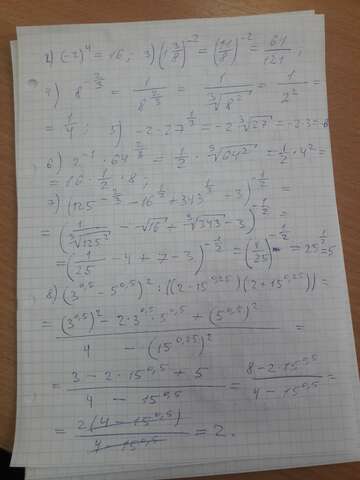 2) (-2)⁴ = 16; 3) (1 3/8)⁻² = (11/8)⁻² = 64/121;
4) 8^(-2/3) = 1/8^(2/3) = 1/∛8² = 1/2² =
= 1/4; 5) -2·27^(1/3) = -2·∛27 = -2·3 = -6
6) 2⁻¹·64^(2/3) = 1/2·∛64² = 1/2·4² =
= 16·1/2·8;
7) (125^(-2/3) - 16^(1/2) + 343^(1/3) - 3)^(-1/2) =
= (1/∛125² - √16 + ∛343 - 3)^(-1/2) =
= (1/25 - 4 + 7 - 3)^(-1/2) = (1/25)^(-1/2) = 25^(1/2) = 5
8) (3^0,5 - 5^0,5)² : ((2 - 15^0,25)(2 + 15^0,25)) =
= ((3^0,5)² - 2·3^0,5·5^0,5 + (5^0,5)²)/(4 - (15^0,25)²) =
= (3 - 2·15^0,5 + 5)/(4 - 15^0,5) = (8 - 2·15^0,5)/(4 - 15^0,5) =
= 2(4 - 15^0,5)/(4 - 15^0,5) = 2.